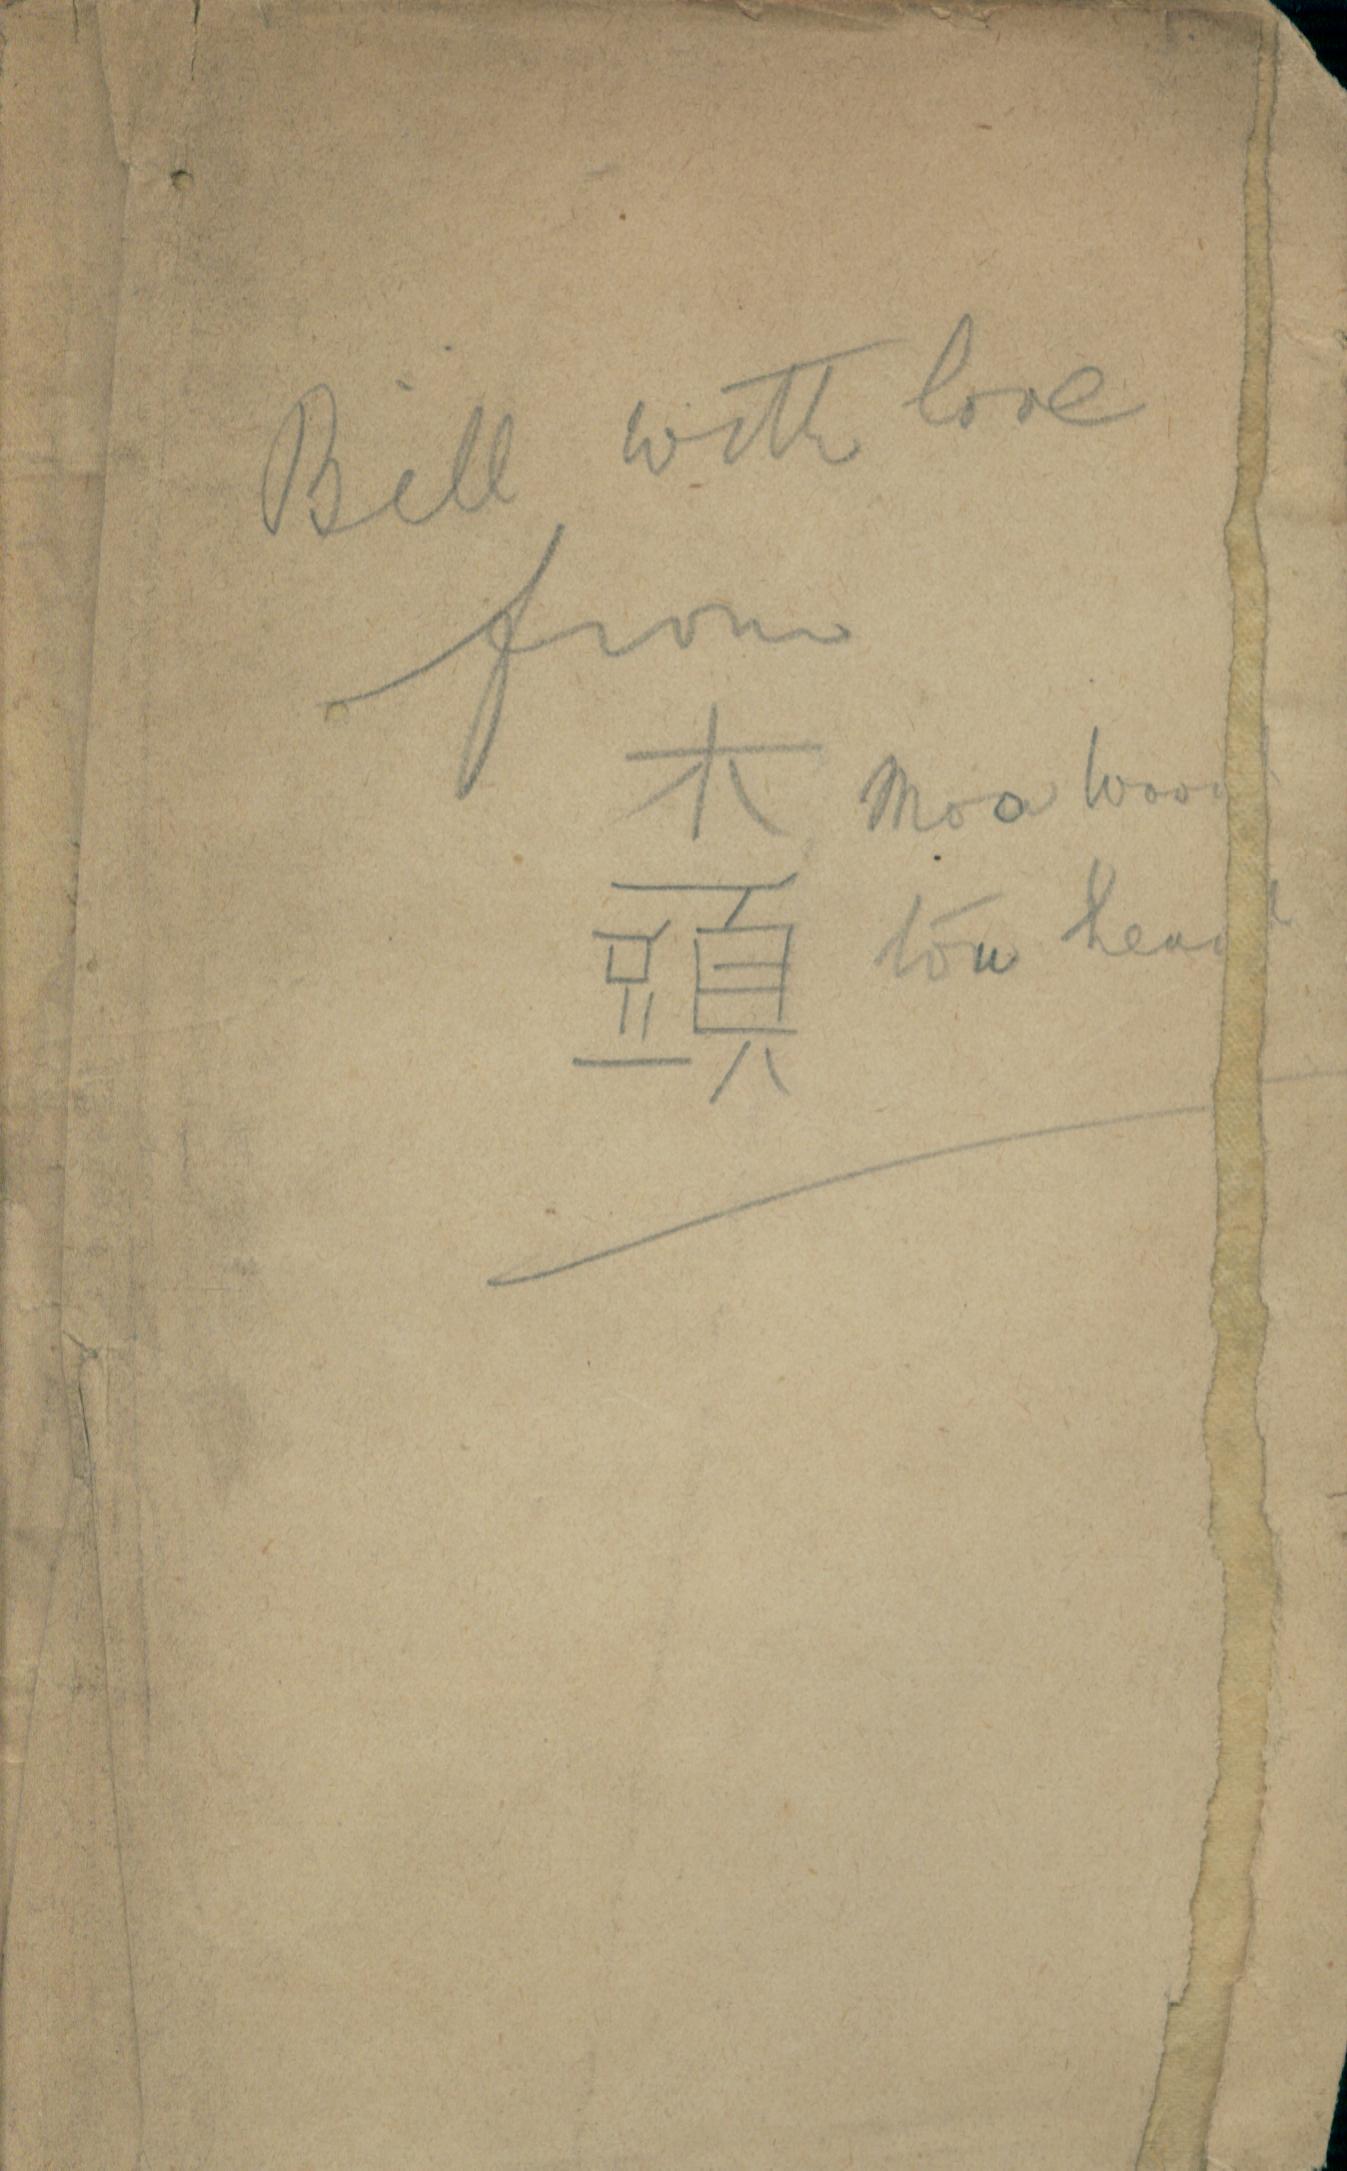 Bill with love
from
木 Moa wood
頭 tōu head